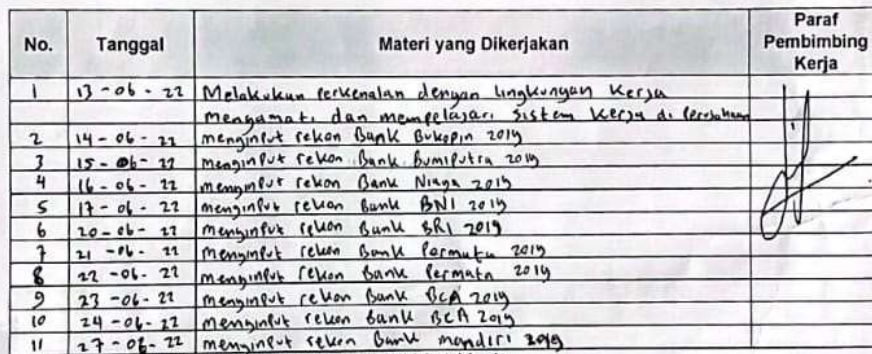 No. Tanggal Materi yang Dikerjakan Paraf Pembimbing Kerja
1 13-06-22 Melakukan perkenalan dengan lingkungan kerja
mengamati dan mempelajari sistem kerja di perusahaan
2 14-06-22 menginput rekon Bank Bukopin 2019
3 15-06-22 menginput rekon Bank Bumiputra 2019
4 16-06-22 menginput rekon Bank Niaga 2019
5 17-06-22 menginput rekon Bank BNI 2019
6 20-06-22 menginput rekon Bank BRI 2019
7 21-06-22 menginput rekon Bank Permata 2019
8 22-06-22 menginput rekon Bank Permata 2019
9 23-06-22 menginput rekon Bank BCA 2019
10 24-06-22 menginput rekon Bank BCA 2019
11 27-06-22 menginput rekon Bank mandiri 2019